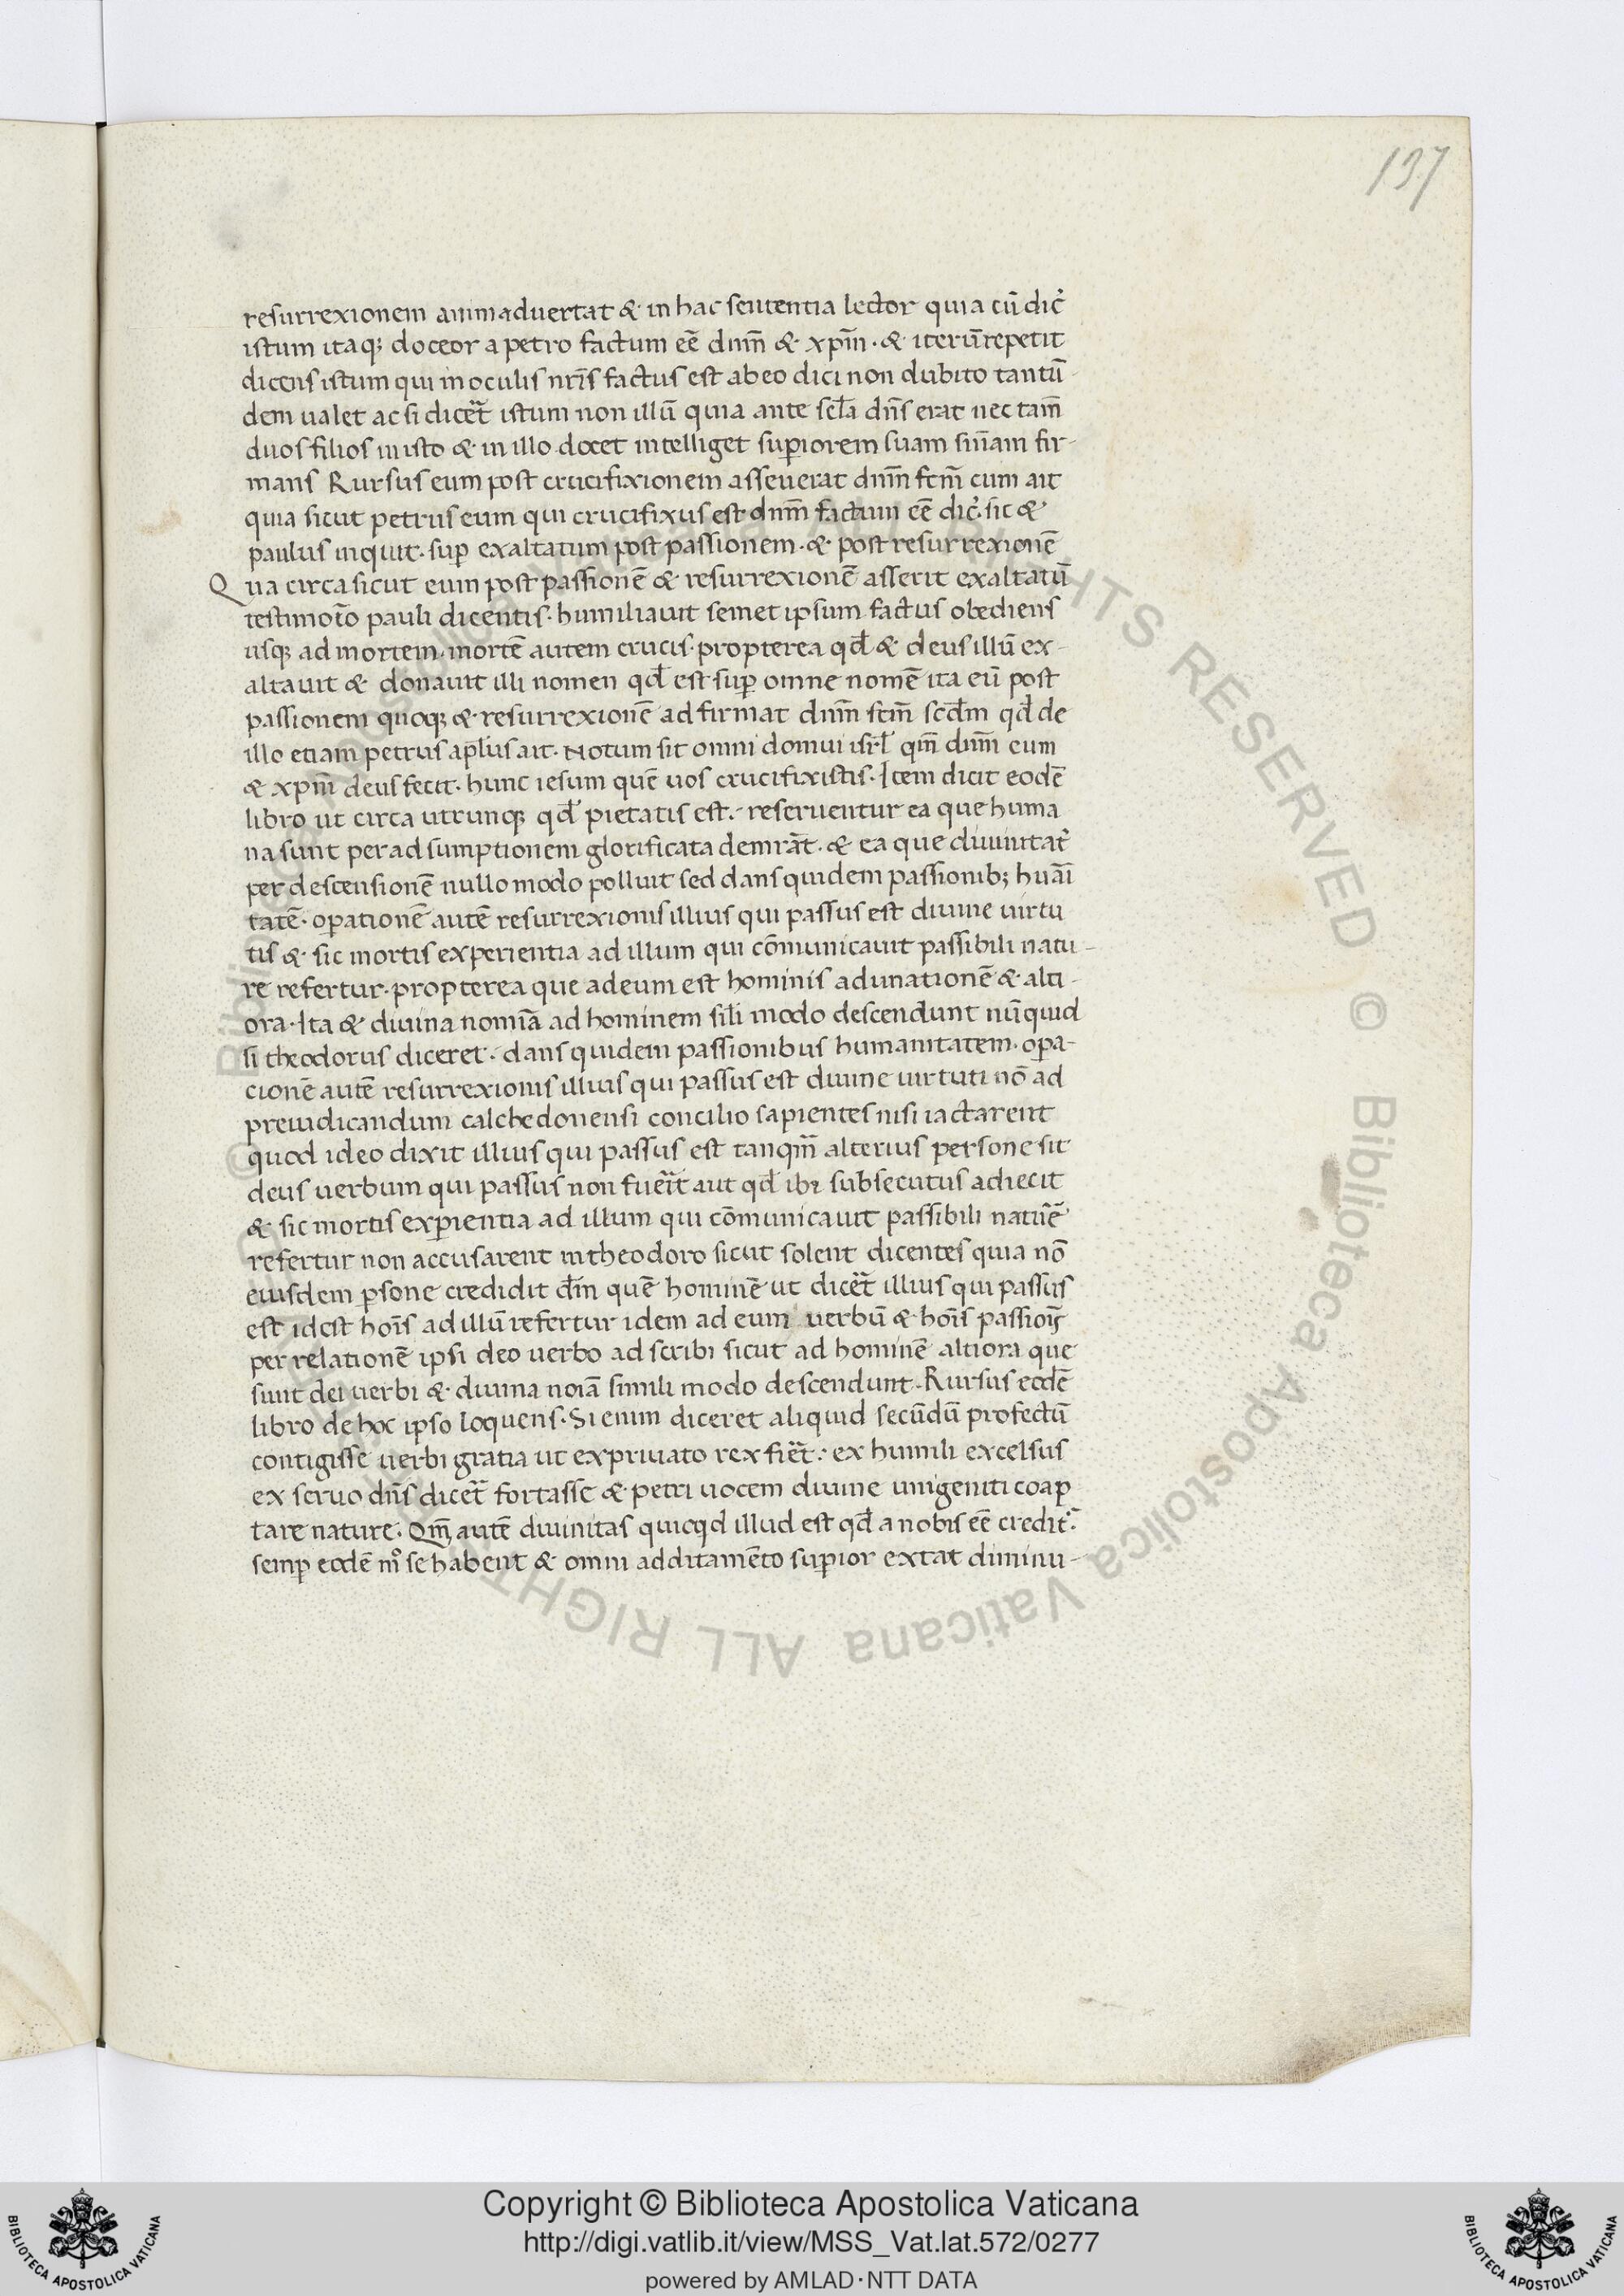 137
resurrexionem animadvertat & in hac sententia lector quia cū dic̃
istum itaq; doceor a petro factum eē dnm̄ & xpm̄ · & iterū repetit
dicens istum qui in oculis nr̄is factus est ab eo dici non dubito tantū-
dem ualet ac si dicer̃t istum non illū quia ante scl̄a dn̄s erat nec tam̄
duos filios in isto & in illo docet intelliget sup̄iorem suam sn̄iam fir-
mans Rursus eum post crucifixionem asseuerat dnm̄ fcm̄ cum ait
quia sicut petrus eum qui crucifixus est dnm̄ factum eē dic̃ sic &
paulus inquit · sup̄ exaltatum post passionem · & post resurrexionē
Qua circa sicut eum post passionē & resurrexionē asserit exaltatū
testimoīo pauli dicentis · humiliauit semet ipsum factus obediens
usq; ad mortem · mortē autem crucis · propterea qd̄ & deus illū ex-
altauit & donauit illi nomen qd̄ est sup̄ omne nomē ita eū post
passionem quoq; & resurrexionē adfirmat dnm̄ fcm̄ scd̄m qd̄ de
illo etiam petrus apl̄us ait · Notum sit omni domui isrl̄ qm̄ dnm̄ eum
& xpm̄ deus fecit · hunc iesum quē uos crucifixistis · Item dicit eodē
libro ut circa utrunq; qd̄ pietatis est · reseruentur ea que huma
na sunt per adsumptionem glorificata demr̄at · & ea que diuinitat̃
per descensionē nullo modo polluit sed dans quidem passionib; huāi
tatē · op̄ationē autē resurrexionis illius qui passus est diuine uirtu
tis & sic mortis experientia ad illum qui cōmunicauit passibili natu-
re refertur · propterea que ad eum est hominis adunationē & alti-
ora · Ita & diuina nomīa ad hominem sil̄i modo descendunt nūquid
si theodorus diceret · dans quidem passionibus humanitatem · op̄a-
cionē autē resurrexionis illius qui passus est diuine uirtuti nō ad
preiudicandum calchedonensi concilio sapientes nisi iactarent
quod ideo dixit illius qui passus est tanqm̄ alterius persone sit
deus uerbum qui passus non fuer̃it aut qd̄ ibi subsecutus adiecit
& sic mortis exp̄ientia ad illum qui cōmunicauit passibili natur̃e
refertur non accusarent in theodoro sicut solent dicentes quia nō
eiusdem p̄sone credidit dm̄ quē hominē ut dicer̃t illius qui passus
est idest hoīs ad illū refertur idem ad eum uerbū & hoīs passiōis
per relationē ipsi deo uerbo adscribi sicut ad hominē altiora que
sunt dei uerbi & diuina noīa simili modo descendunt · Rursus eodē
libro de hoc ipso loquens · Si enim diceret aliquid secūdū profectū
contigisse uerbi gratia ut ex priuato rex fier̃t · ex humili excelsus
ex seruo dn̄s dicer̃t fortasse & petri uocem diuine unigeniti coap
tare nature · Qm̄ autē diuinitas quicqd illud est qd̄ a nobis eē credit̃ ·
semp̄ eodē mº se habent & omni additamēto sup̄ior extat diminu-
© Biblioteca Apostolica Vaticana ALL RIGHTS RESERVED © Biblioteca Apostolica Vaticana ALL RIGHTS RESERVED
BIBLIOTECA APOSTOLICA VATICANA
Copyright © Biblioteca Apostolica Vaticana
http://digi.vatlib.it/view/MSS_Vat.lat.572/0277
powered by AMLAD·NTT DATA
BIBLIOTECA APOSTOLICA VATICANA